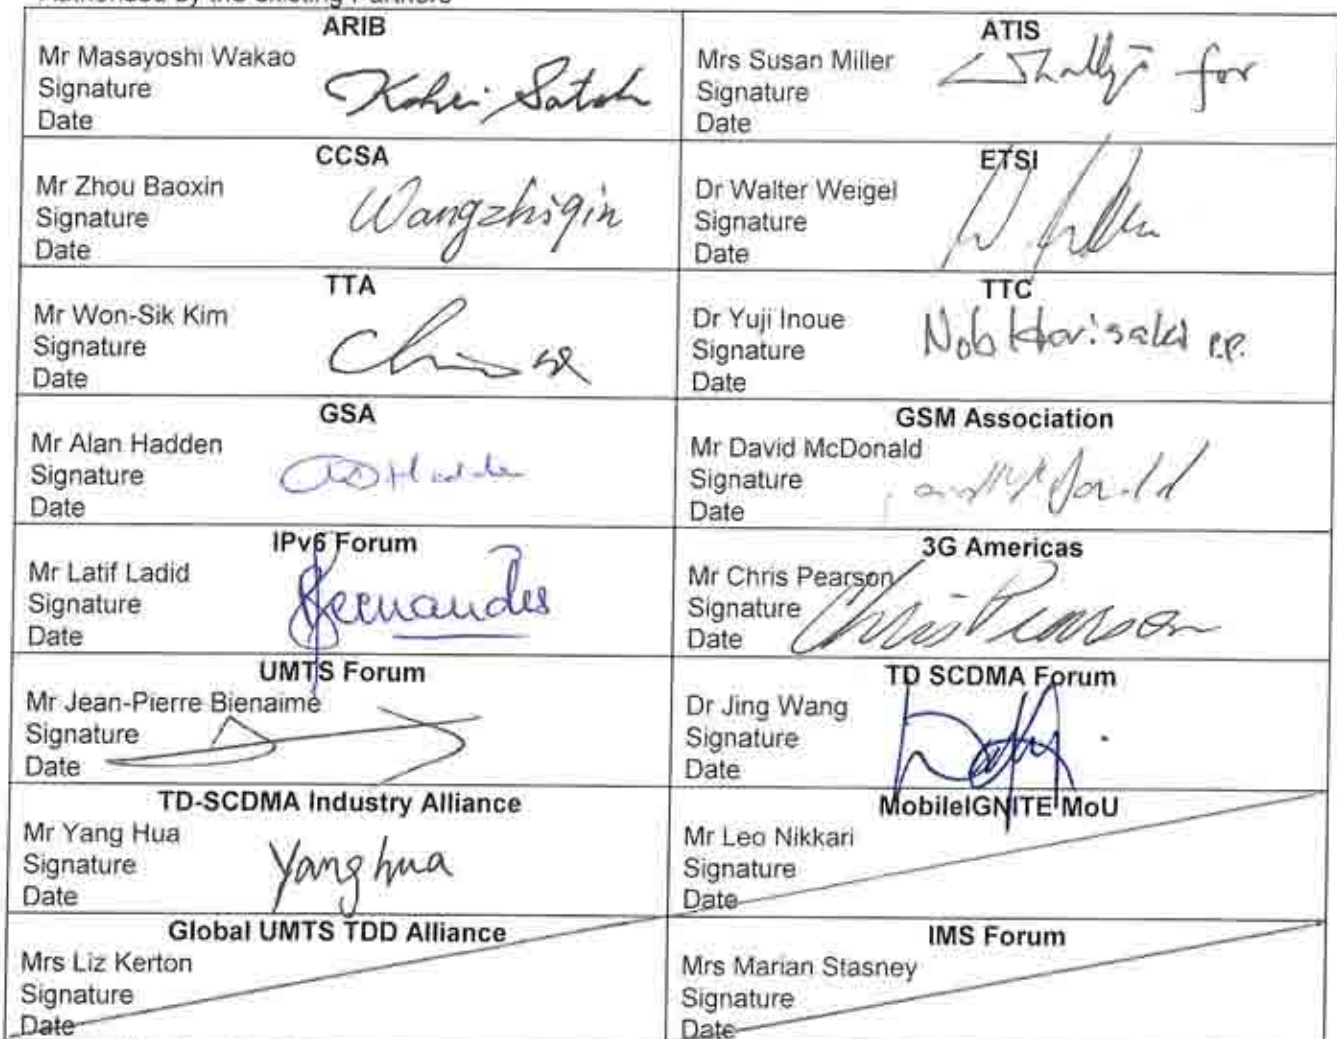 Authorised by the existing Partners
ARIB
Mr Masayoshi Wakao
Signature
Date
Kohei Satoh
ATIS
Mrs Susan Miller
Signature
Date
for
CCSA
Mr Zhou Baoxin
Signature
Date
Wangzhiqin
ETSI
Dr Walter Weigel
Signature
Date
TTA
Mr Won-Sik Kim
Signature
Date
TTC
Dr Yuji Inoue
Signature
Date
Nob Horisaki p.p.
GSA
Mr Alan Hadden
Signature
Date
Hadden
GSM Association
Mr David McDonald
Signature
Date
IPv6 Forum
Mr Latif Ladid
Signature
Date
Fernandes
3G Americas
Mr Chris Pearson
Signature
Date
Chris Pearson
UMTS Forum
Mr Jean-Pierre Bienaimé
Signature
Date
TD SCDMA Forum
Dr Jing Wang
Signature
Date
TD-SCDMA Industry Alliance
Mr Yang Hua
Signature
Date
Yang hua
MobileIGNITE MoU
Mr Leo Nikkari
Signature
Date
Global UMTS TDD Alliance
Mrs Liz Kerton
Signature
Date
IMS Forum
Mrs Marian Stasney
Signature
Date